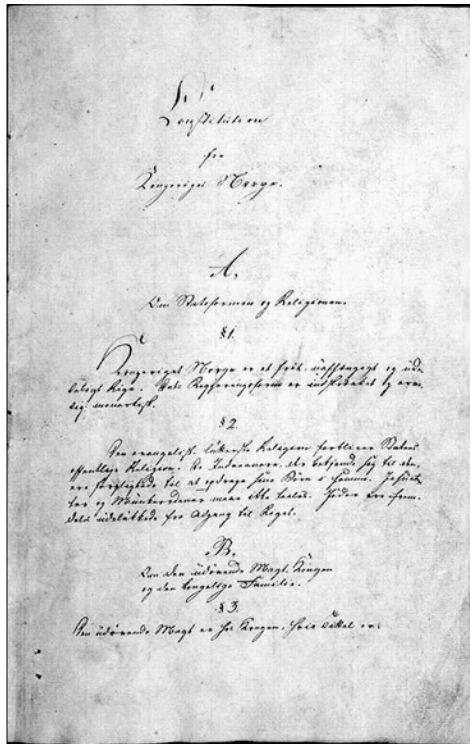 Constitution
for
Kongeriget Norge.
A.
Om Statsformen og Religionen.
§ 1.
Kongeriget Norge er et frit, uafhængigt og ude-
leligt Rige. Dets Regjeringsform er indskrænket og arve-
lig monarkisk.
§ 2.
Den evangelisk-lutherske Religion forbliver Statens
offentlige Religion. De Indvaanere, der bekjende sig til den,
ere forpligtede til at opdrage sine Börn i samme. Jesuit-
ter og Munkeordener maae ikke taales. Jöder ere frem-
deles udelukkede fra Adgang til Riget.
B.
Om den udövende Magt, Kongen
og den kongelige Familie.
§ 3.
Den udövende Magt er hos Kongen, hvis Tittel er: